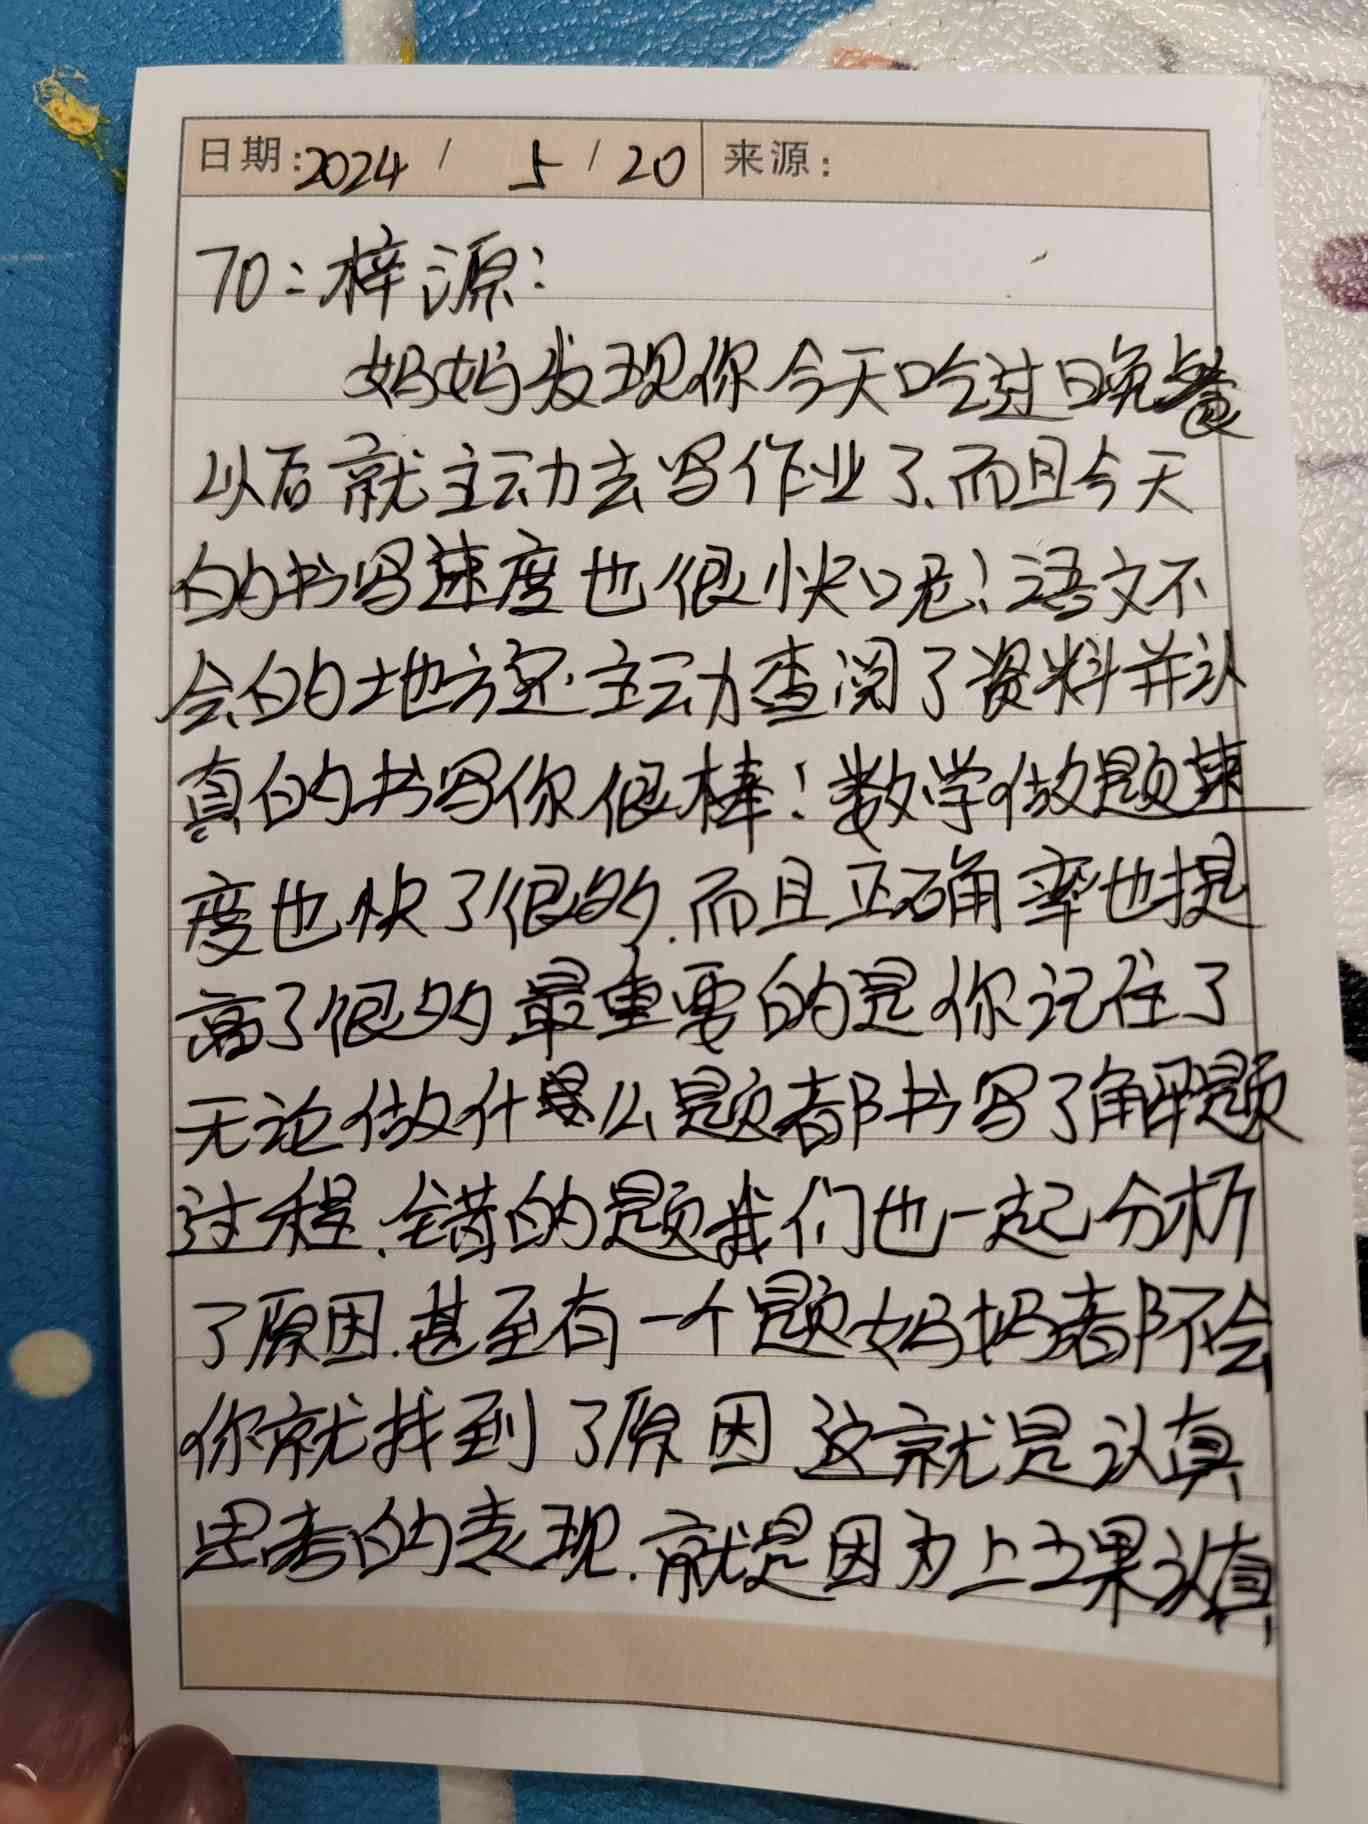 日期:2024 / 5 / 20 来源:
TO:梓源:
妈妈发现你今天吃过晚餐
以后就主动去写作业了、而且今天
的书写速度也很快呢!语文不
会的地方还主动查阅了资料并认
真的书写你很棒!数学做题速
度也快了很多.而且正确率也提
高了很多.最重要的是你记住了
无论做什么题都书写了解题
过程.错的题我们也一起分析
了原因.甚至有一个题妈妈都不会
你就找到了原因 这就是认真
思考的表现.就是因为上课认真